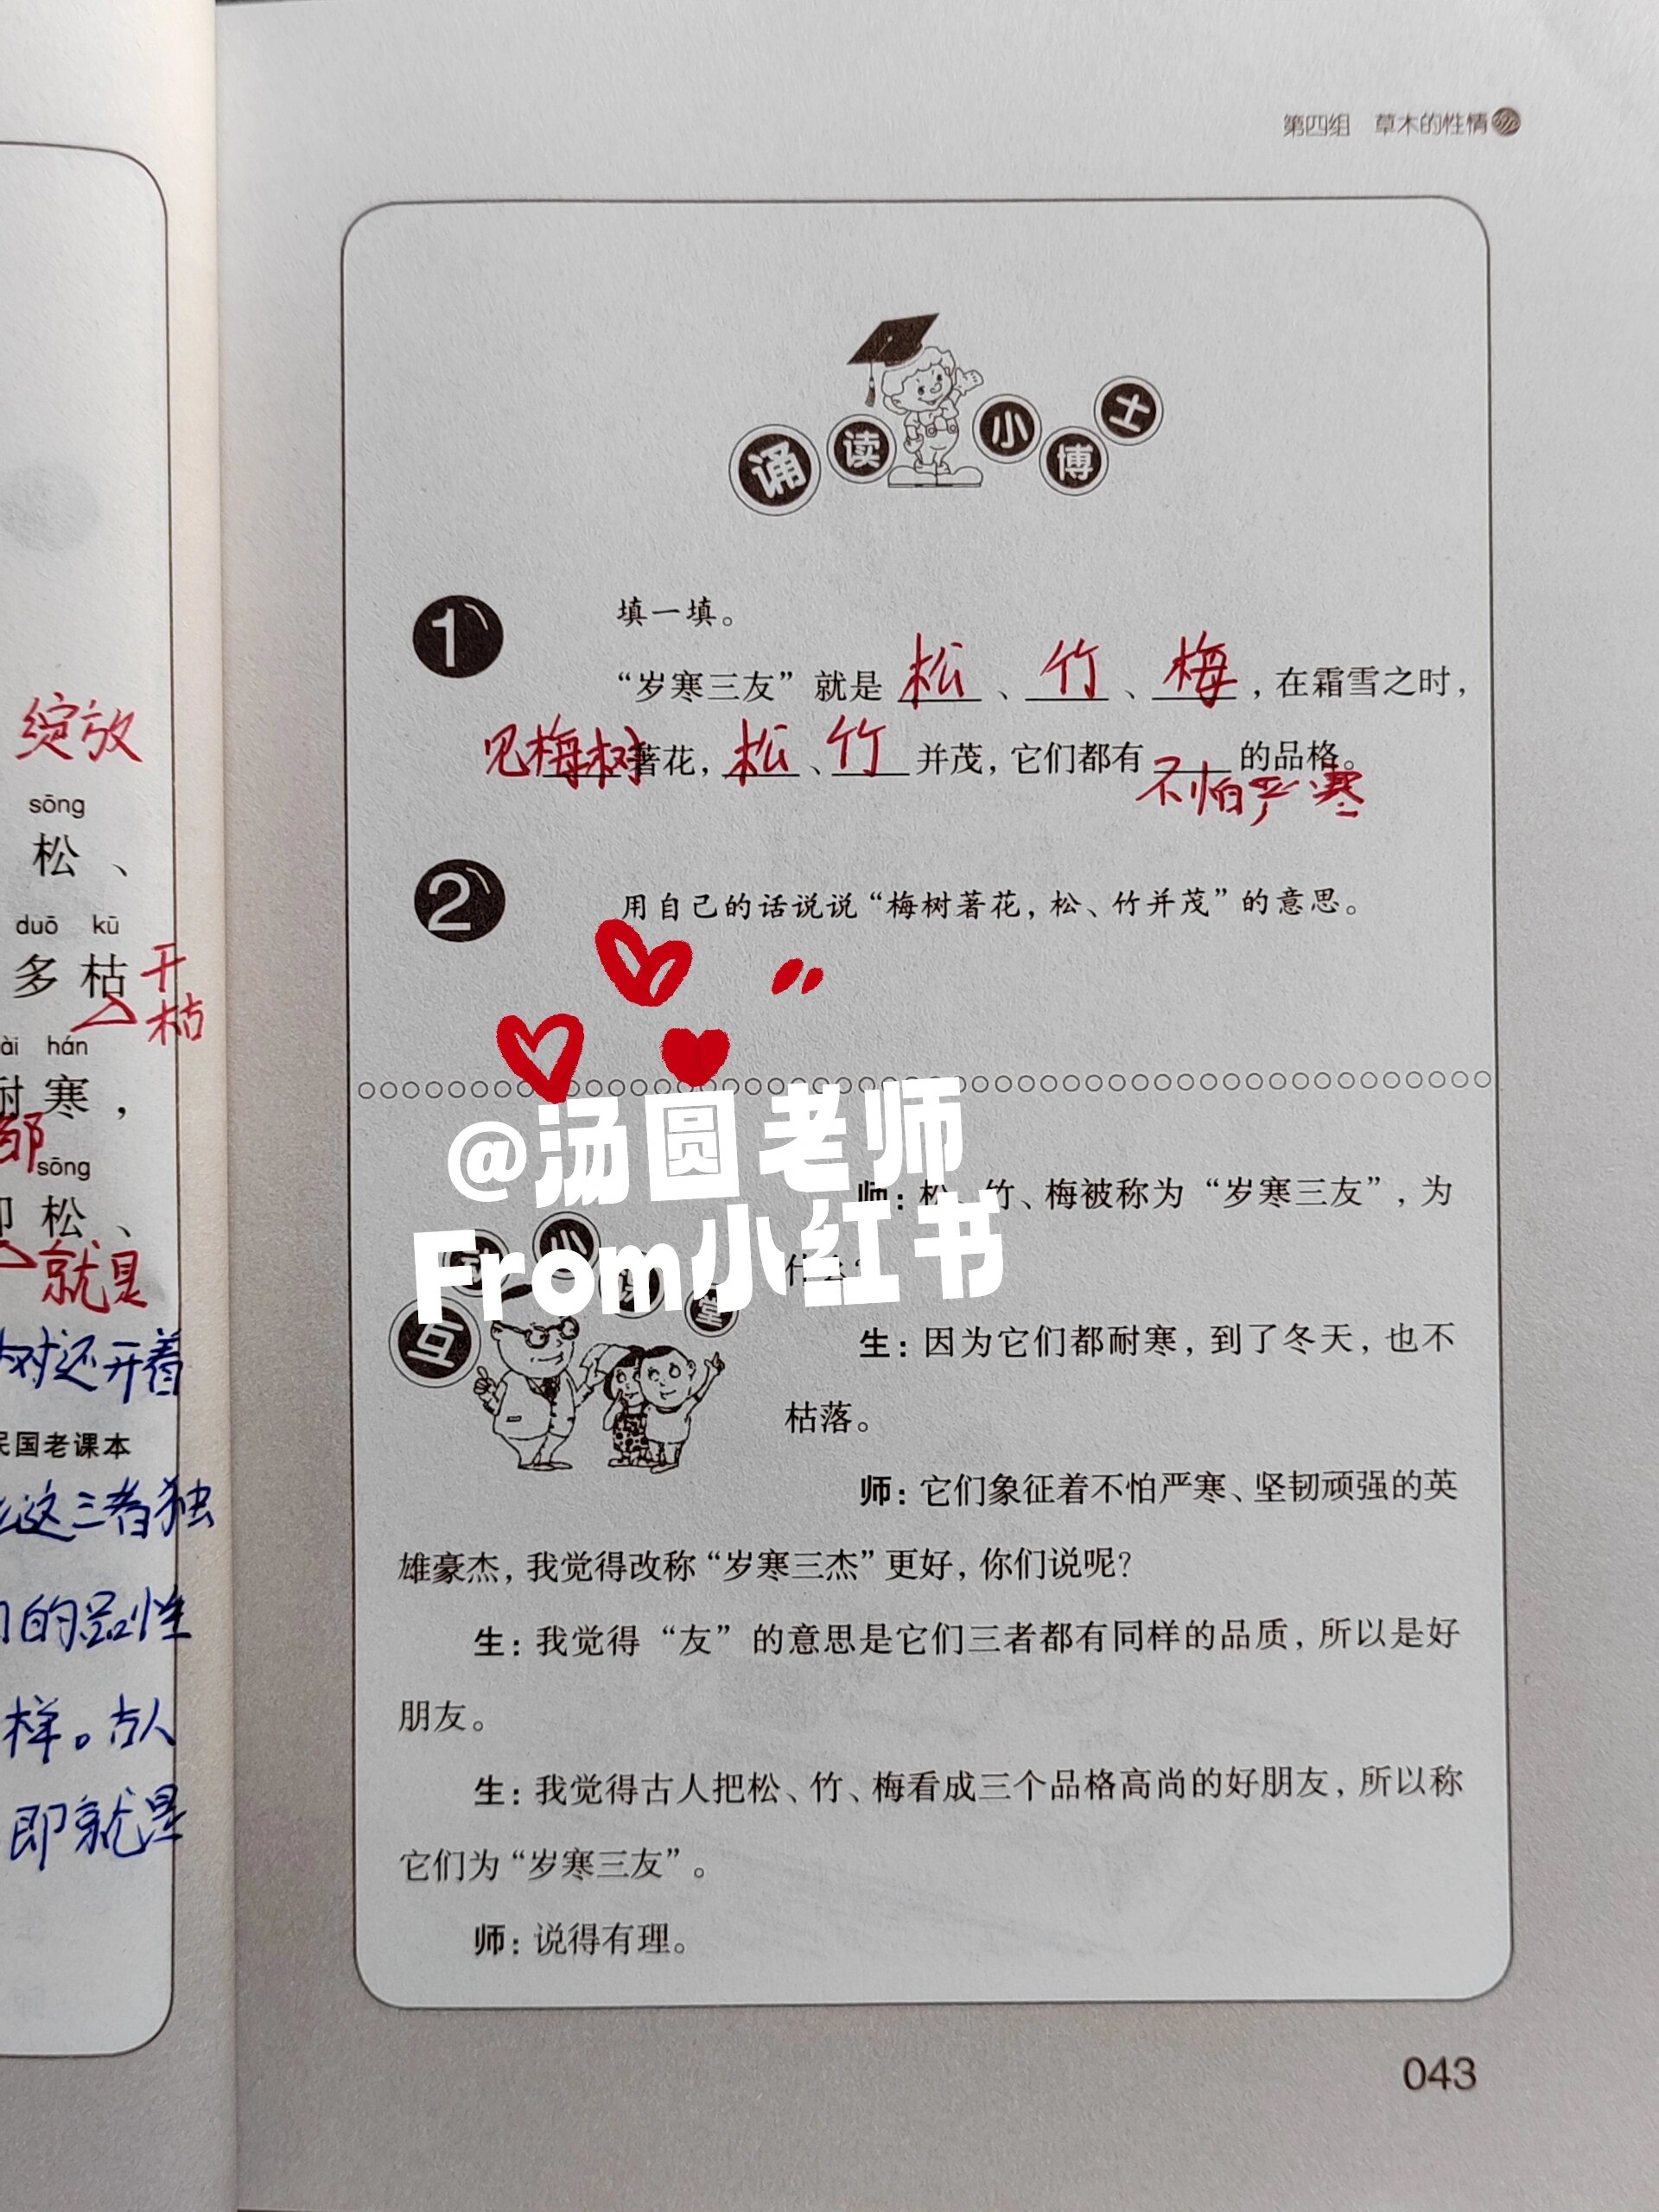 第四组 草木的性情
诵读小博士
1
填一填。
“岁寒三友”就是 松 、 竹 、 梅 ，在霜雪之时，
见梅树著花，松、竹并茂，它们都有 的品格。
不怕严寒
2
用自己的话说说“梅树著花，松、竹并茂”的意思。
@汤圆老师
From小红书
师：松、竹、梅被称为“岁寒三友”，为
什么？
互动小课堂
生：因为它们都耐寒，到了冬天，也不
枯落。
师：它们象征着不怕严寒、坚韧顽强的英
雄豪杰，我觉得改称“岁寒三杰”更好，你们说呢？
生：我觉得“友”的意思是它们三者都有同样的品质，所以是好
朋友。
生：我觉得古人把松、竹、梅看成三个品格高尚的好朋友，所以称
它们为“岁寒三友”。
师：说得有理。
043
绽放
sōng
松、
duō kū
多枯
干
枯
hán
寒，
都
sōng
松、
就是
树还开着
民国老课本
这三者独
的品性
样。古人
即就是